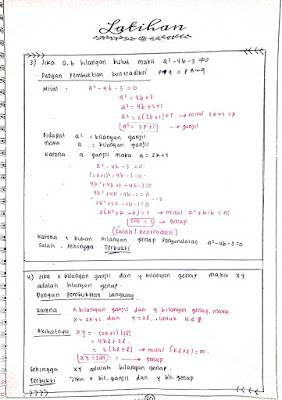 Latihan
3) Jika a, b bilangan bulat maka a² - 4b - 3 ≠ 0
Dengan pembuktian kontradiksi
Misal : a² - 4b - 3 = 0
a² = 4b + 3
a² = 4b + 2 + 1
a² = 2(2b+1) + 1 → misal 2b+1 = p
a² = 2p + 1 → ganjil
Didapat a² = bilangan ganjil
maka a = bilangan ganjil
karena a ganjil maka a = 2k+1
a² - 4b - 3 = 0
(2k+1)² - 4b - 3 = 0
4k² + 4k + 1 - 4b - 3 = 0
4k² + 4k - 4b - 2 = 0
2k² + 2k - 2b - 1 = 0
2(k² + k - b) = 1 → misal k² + k - b = m
2m = 1 → genap
(Salah / kontradiksi)
Karena 1 bukan bilangan genap pengandaian a² - 4b - 3 = 0
Salah. Sehingga Terbukti
4) Jika x bilangan ganjil dan y bilangan genap maka xy
adalah bilangan genap.
Dengan Pembuktian Langsung
Karena x bilangan ganjil dan y bilangan genap, maka
x = 2k+1 dan y = 2l, untuk k,l ∈ B
Akibatnya xy = (2k+1) (2l)
= 4kl + 2l
= 2 (2kl + l) → misal (2kl+l) = m.
xy = 2m → genap
Sehingga xy adalah bilangan genap.
Terbukti Jika x bil. ganjil dan y bil. genap